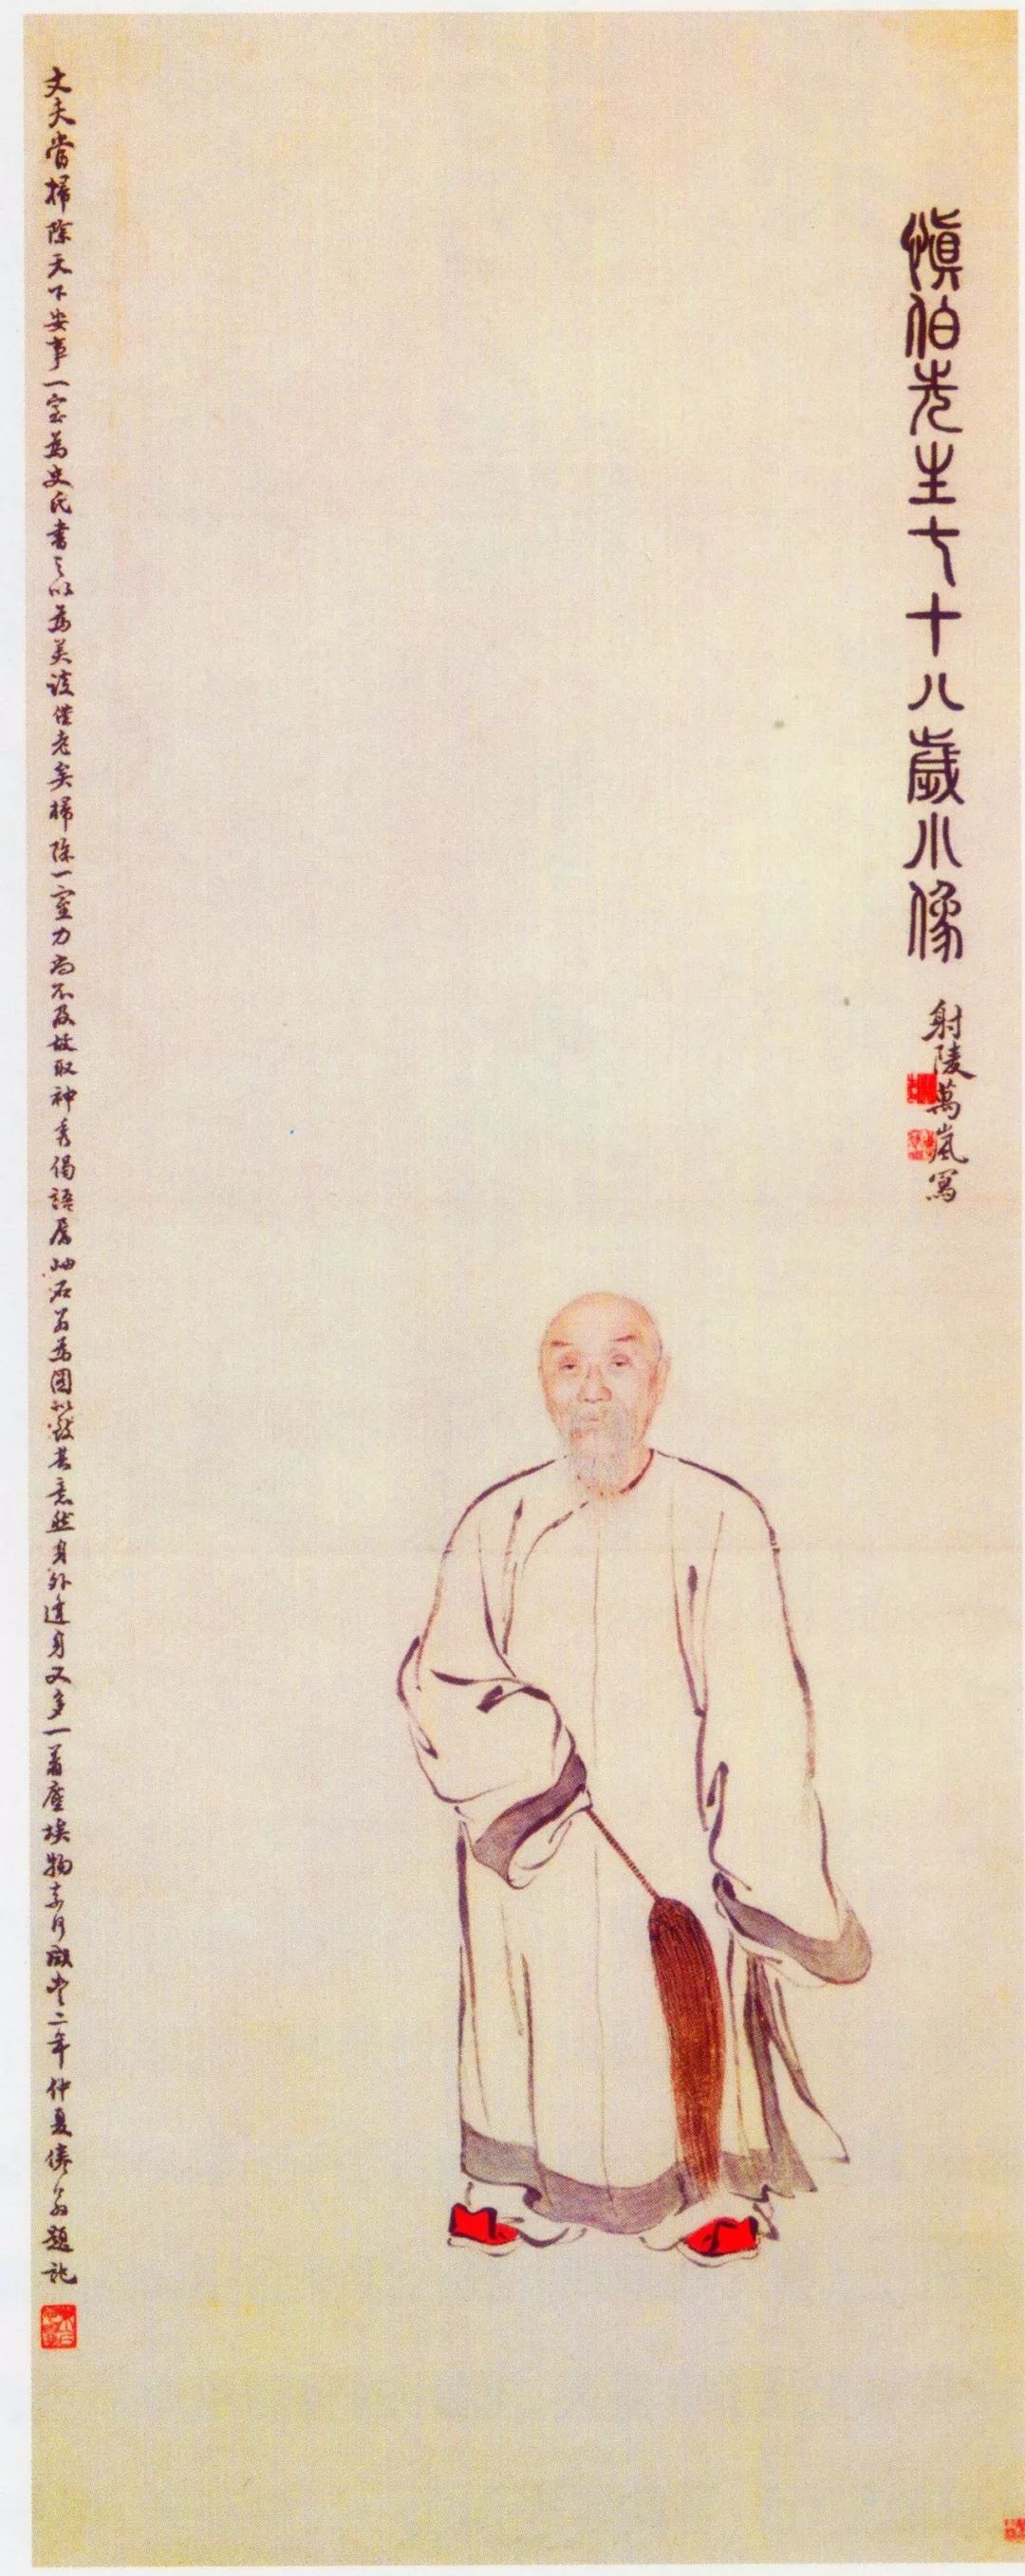 慎伯先生七十八歲小像
射陵萬嵐寫
丈夫當掃除天下安事一室為史氏書之以為美談僕老矣掃除一室力尚不及故取神秀偈語屬岫石翁為圖以致其意然身外遺身又多一著塵埃物奈何咸豐二年仲夏倦翁題記